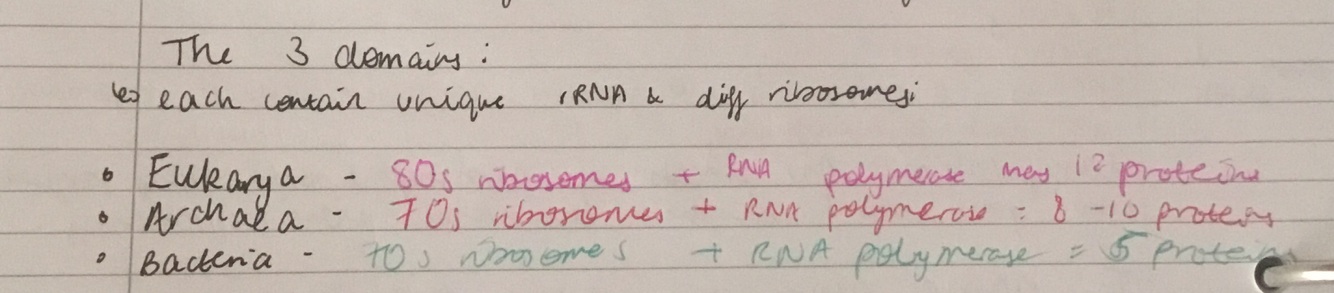 The 3 domains :
↳ each contain unique rRNA & diff ribosomes:
• Eukarya - 80s ribosomes + RNA polymerase has 12 proteins
• Archaea - 70s ribosomes + RNA polymerase = 8 -10 proteins
• Bacteria - 70s ribosomes + RNA polymerase = 5 proteins